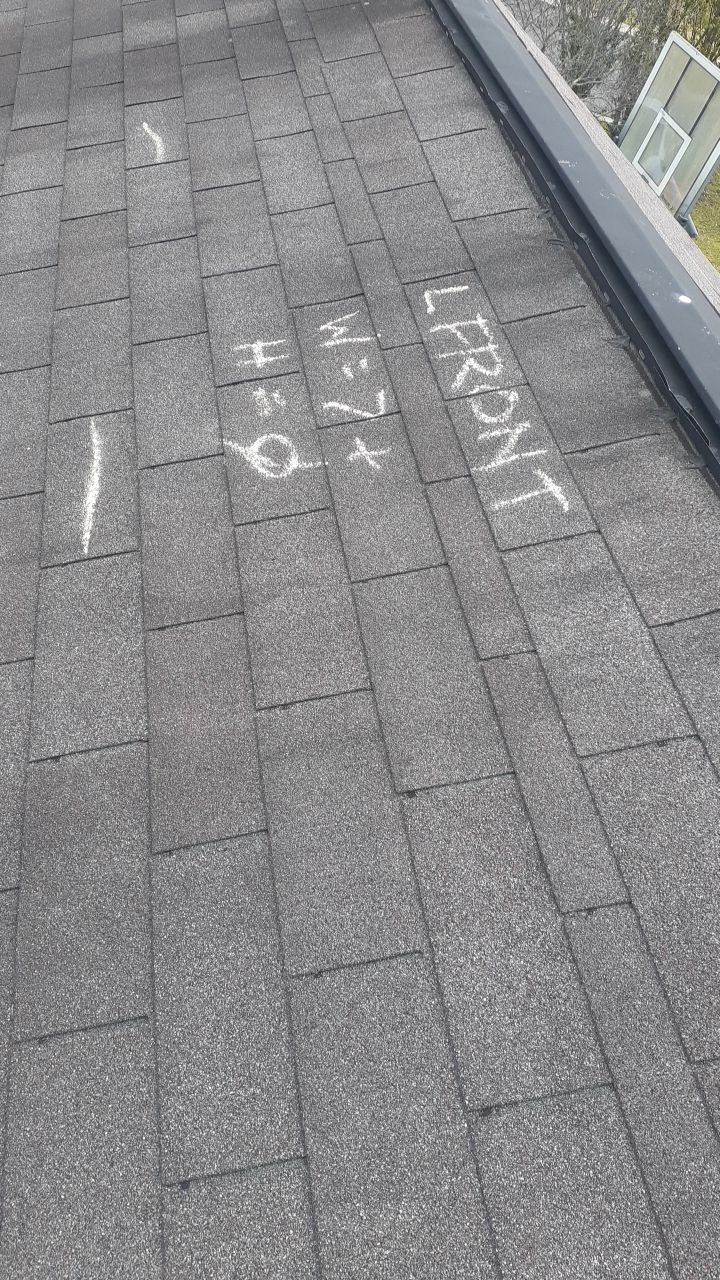 L FRONT
W = 7+
H = Ø